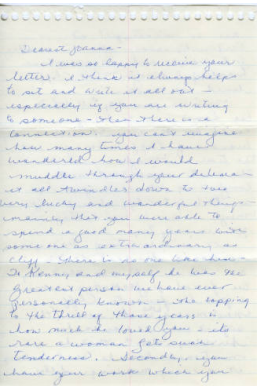 Dearest Joanna -
I was so happy to receive your
letter. I think it always helps
to sit and write it all out -
especially if you are writing
to someone - then there is a
connection. You can't imagine
how many times I have
wondered how I would
muddle through your dilemma
it all dwindles down to two
very lucky and wonderful things -
mainly that you were able to
spend a good many years with
someone as extraordinary as
Cliff - there is no one like him -
To Kenny and myself he was the
greatest person we have ever
personally known - the topping
to the thrill of those years is
how much he loved you - its
rare a woman gets such
tenderness. Secondly, you
have your work which you